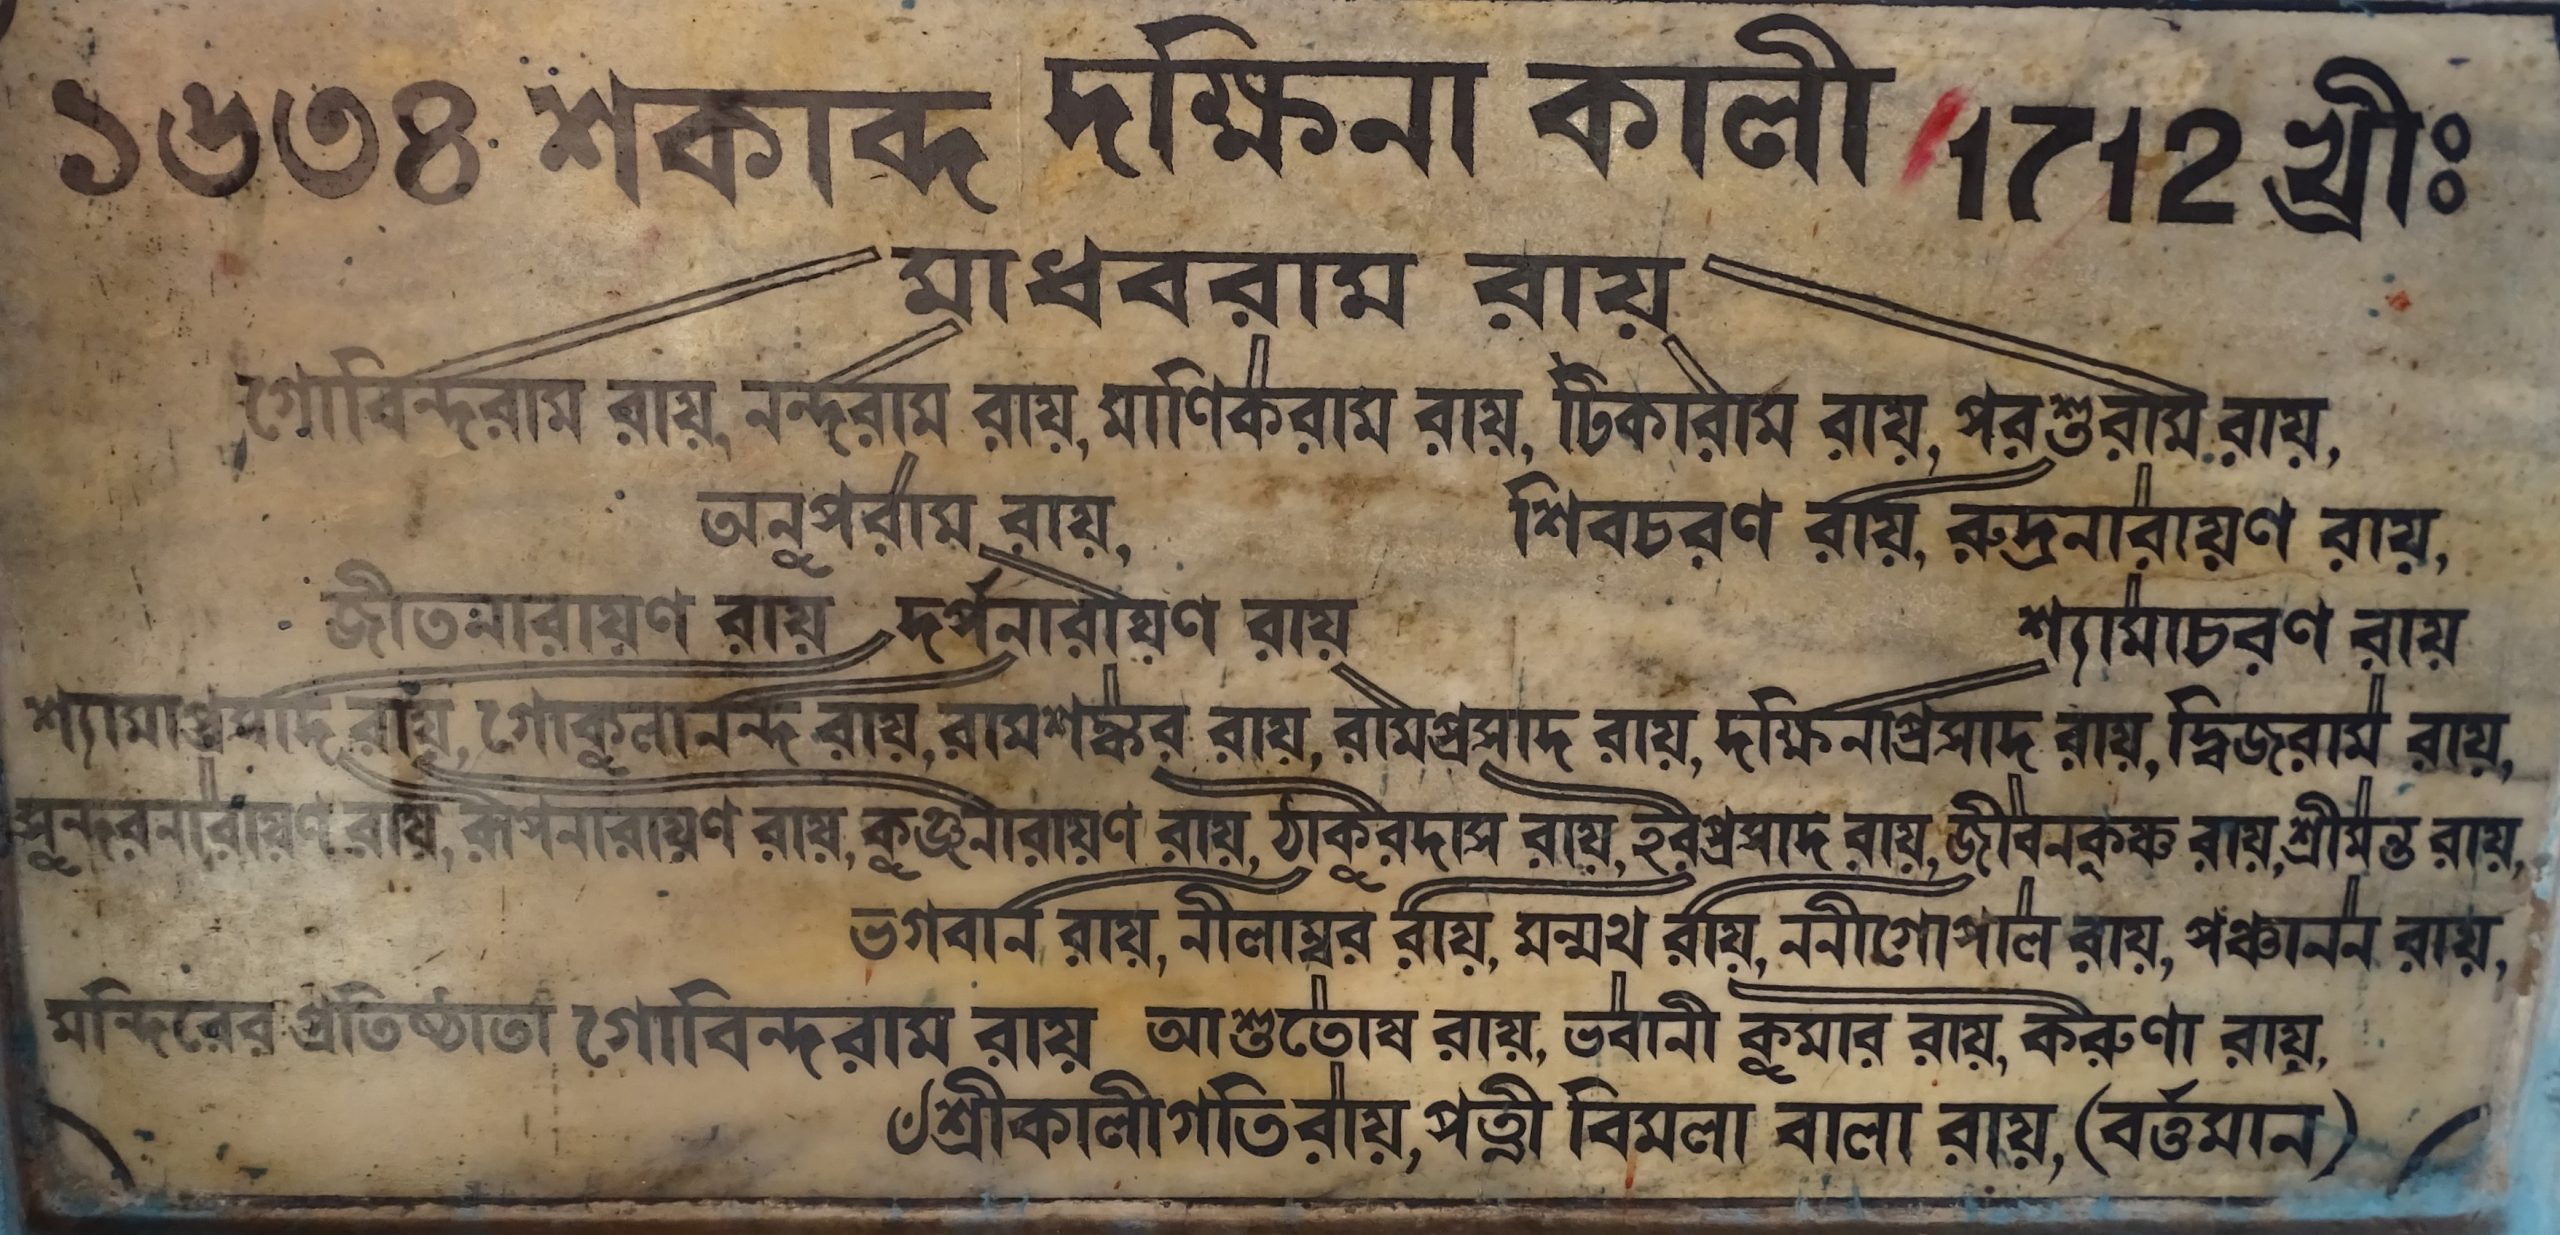 ১৬৩৪ শকাব্দ দক্ষিনা কালী 1712 খ্রীঃ
মাধবরাম রায়
গোবিন্দরাম রায়, নন্দরাম রায়, মাণিকরাম রায়, টিকারাম রায়, পরশুরাম রায়,
অনূপরাম রায়, শিবচরণ রায়, রুদ্রনারায়ণ রায়,
জীতনারায়ণ রায় দর্পনারায়ণ রায় শ্যামাচরণ রায়
শ্যামাপ্রসাদ রায়, গোকূলানন্দ রায়, রামশঙ্কর রায়, রামপ্রসাদ রায়, দক্ষিনাপ্রসাদ রায়, দ্বিজরাম রায়,
সূন্দরনারায়ণ রায়, রূপনারায়ণ রায়, কূঞ্জনারায়ণ রায়, ঠাকূরদাস রায়, হরপ্রসাদ রায়, জীবনকৃষ্ণ রায়, শ্রীমন্ত রায়,
ভগবান রায়, নীলাম্বর রায়, মন্মথ রায়, ননীগোপাল রায়, পঞ্চানন রায়,
মন্দিরের প্রতিষ্ঠাতা গোবিন্দরাম রায় আশুতোষ রায়, ভবানী কূমার রায়, করুণা রায়,
৺শ্রীকালীগতি রায়, পত্নী বিমলা বালা রায়, (বর্ত্তমান)